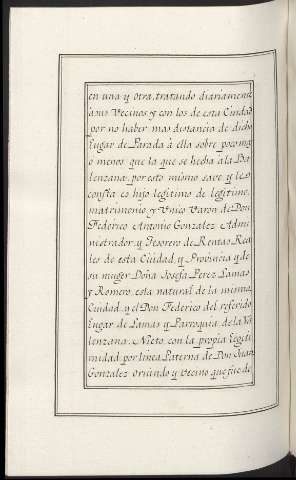 en una y otra, tratando diariamente
à sus Vecinos y con los de esta Ciudad
por no haber mas distancia de dicho
Lugar de Parada à ella sobre poco mas
o menos que la que se hecha à la Va-
lenzana: por esto mismo save y le
consta es hijo legitimo de legitimo,
matrimonio, y Unico Varon de Don
Federico Antonio Gonzalez Admi-
nistrador, y Tesorero de Rentas Rea-
les de esta Ciudad, y Provincia y de
su muger Doña Josefa Perez Lamas
y Romero, esta natural de la misma
Ciudad, y el Don Federico del referido
Lugar de Lamas y Parroquia de la Va-
lenzana. Nieto con la propia legiti-
midad por linea Paterna de Don Juan
Gonzalez Oriundo y Vecino que fue de